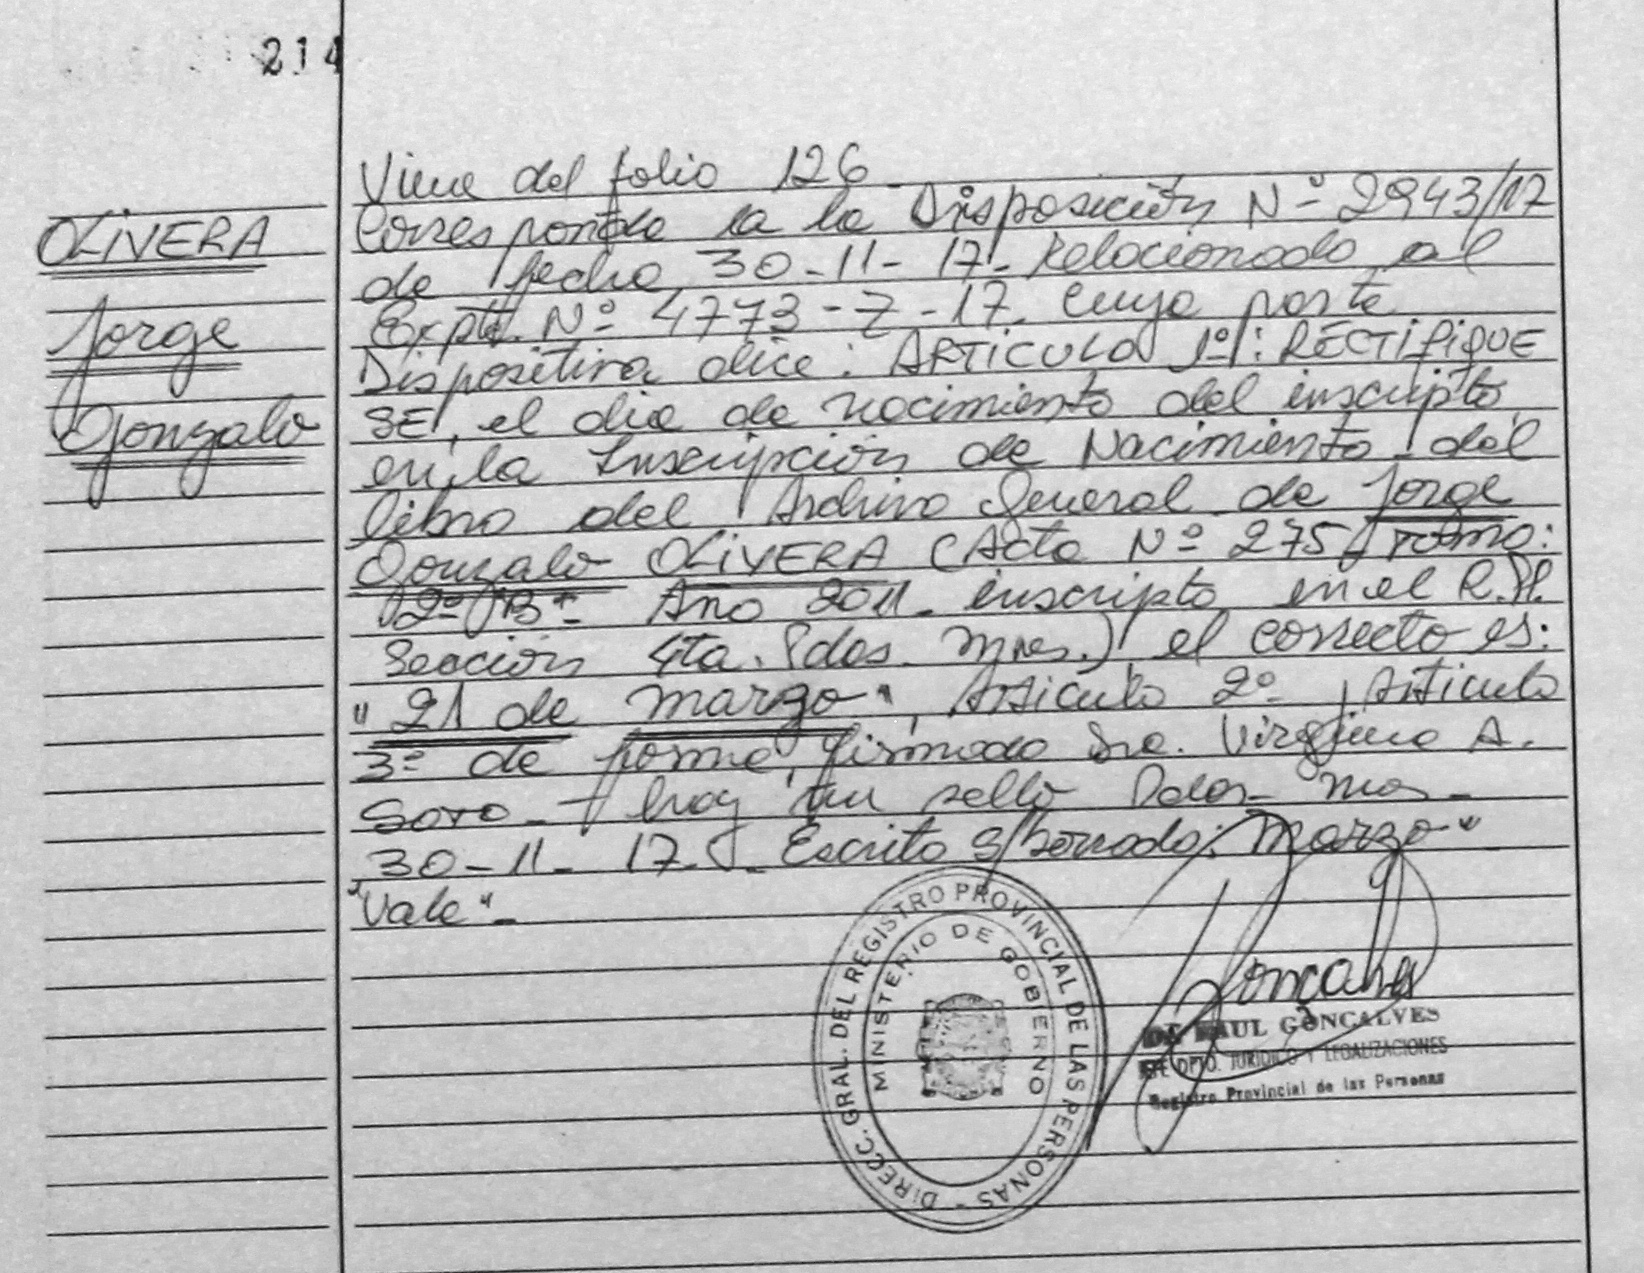 214
OLIVERA
Jorge
Gonzalo
Viene del folio 126
Corresponde a la Disposición Nº 2943/17
de fecha 30-11-17- Relacionado al
Expte. Nº 4773-Z-17. Cuya parte
Dispositiva dice: ARTICULO 1º: RECTIFIQUE
SE, el dia de nacimiento del inscripto,
en la Inscripción de Nacimiento del
libro del Archivo General de Jorge
Gonzalo OLIVERA (Acta Nº 275 Tomo:
2º "B" Año 2011- inscripto en el R.P.
Sección 4ta. Pdas. Mnes.) el correcto es:
"21 de marzo", Articulo 2º, Articulo
3º de forma, firmado Dra. Virginia A.
Soto- hay un sello Pdas- Mns-
30-11-17- Escrito s/borrado: Marzo"
"Vale"-
DIRECC. GRAL. DEL REGISTRO PROVINCIAL DE LAS PERSONAS -
MINISTERIO DE GOBIERNO
RAUL GONCALVES
DPTO. JURIDICO Y LEGALIZACIONES
Registro Provincial de las Personas